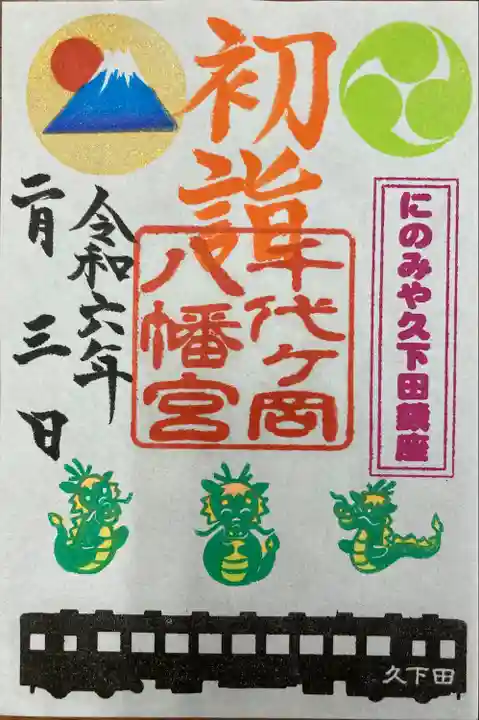 初詣
千代ヶ岡
八幡宮
にのみや久下田鎮座
令和六年
二月三日
久下田